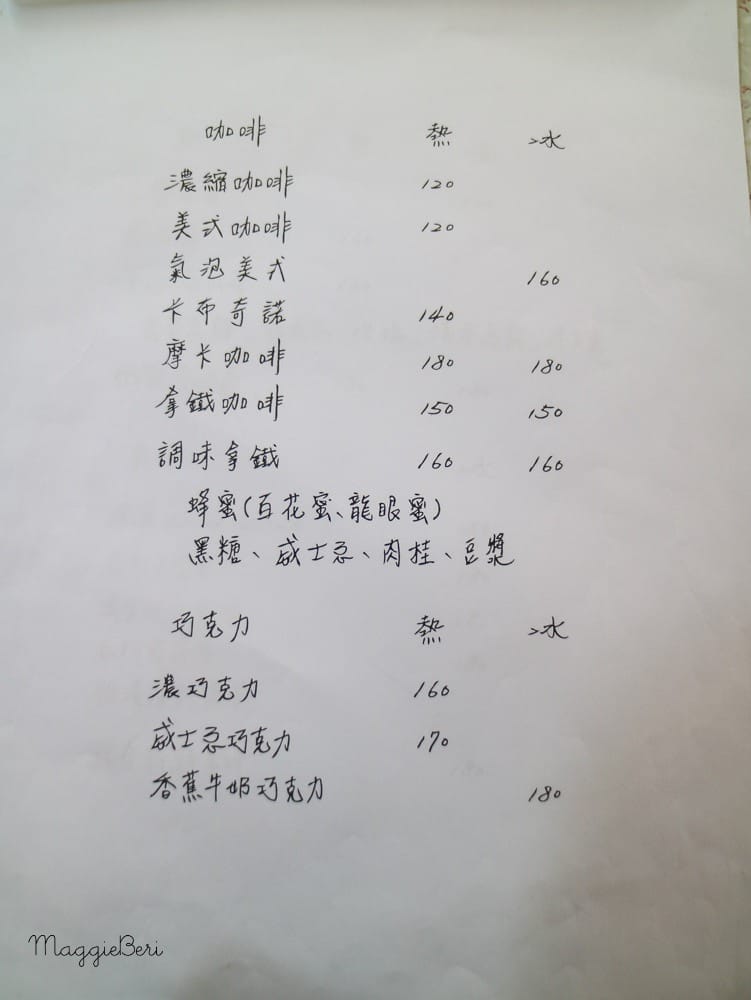 咖啡 熱 冰
濃縮咖啡 120
美式咖啡 120
氣泡美式 160
卡布奇諾 140
摩卡咖啡 180 180
拿鐵咖啡 150 150
調味拿鐵 160 160
蜂蜜(百花蜜、龍眼蜜)
黑糖、威士忌、肉桂、豆漿
巧克力 熱 冰
濃巧克力 160
威士忌巧克力 170
香蕉牛奶巧克力 180
MaggieBeri